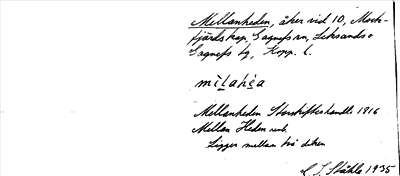 Mellanheden, åker vid 10, Mock-
fjärds kap., Gagnefs sn, Leksands o
Gagnefs tg, Kopp. l.
Mellanheden Storskifteshandl. 1916
Mellan Heden
Ligger mellan två diken
Ståhle 1935